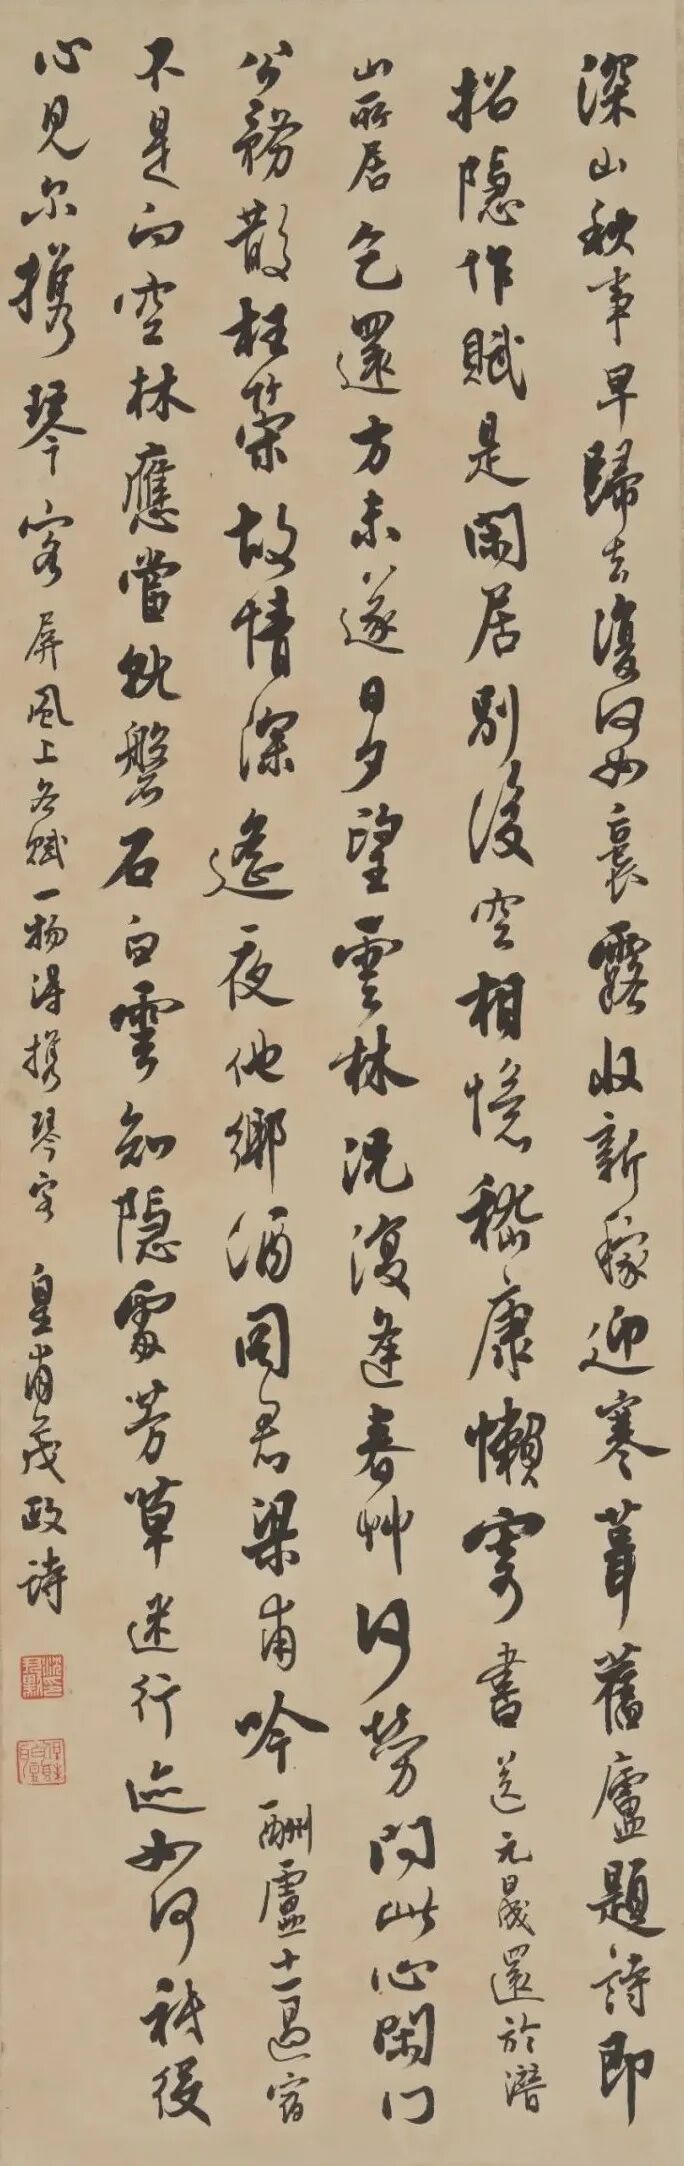 深山秋事早歸去復何如裛露收新稼迎寒葺舊廬題詩即
招隱作賦是閑居別後空相憶嵇康懶寄書送元晟還於潛
山所居乞還方未遂日夕望雲林況復逢春艸何勞問此心閑門
公務散枉策故情深遙夜他鄉酒同君梁甫吟酬盧十一過宿
不是向空林應當就磐石白雲知隱處芳草迷行迹如何祇役
心見尔攜琴客屏風上各賦一物得攜琴客皇甫茂政詩